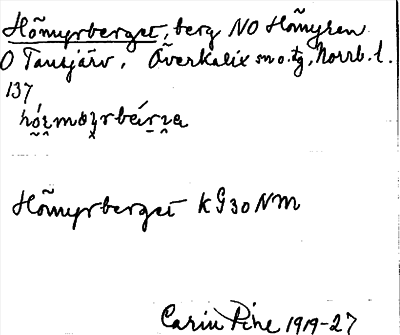 Hömyrberget, berg NO Hömyren
O Tansjärv, Överkalix sn o. tg, Norrb. l.
137
Hömyrberget KG30NM
Carin Pihe 1919-27